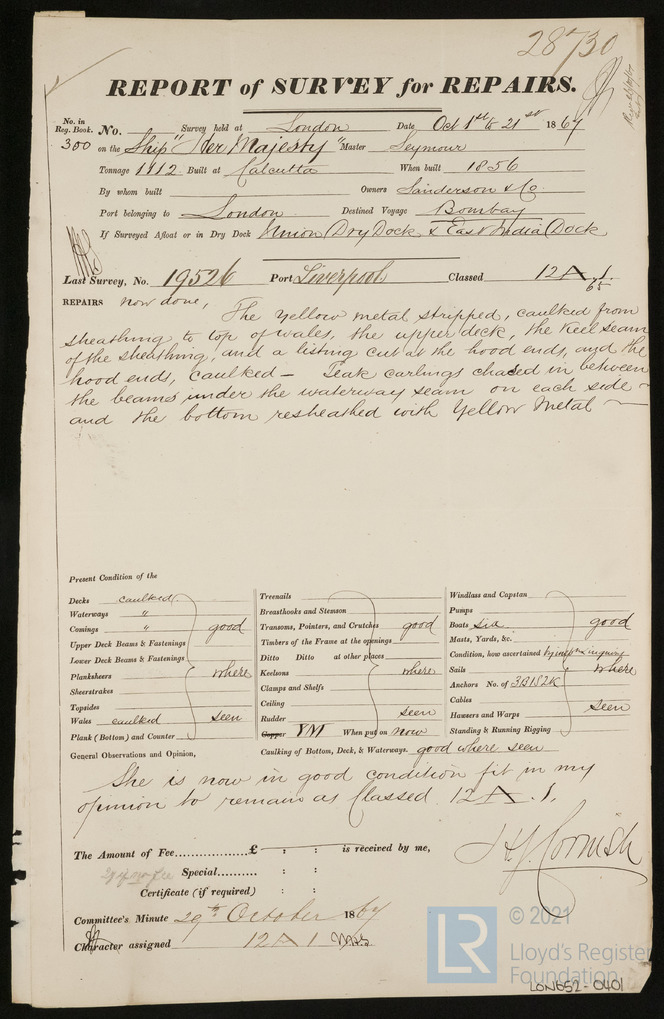 28730
REPORT of SURVEY for REPAIRS.
No. in Reg. Book. No. Survey held at London Date Oct 1st to 21st 1867
300 on the Ship "Her Majesty" Master Seymour
Tonnage 1112 Built at Calcutta When built 1856
By whom built Owners Sanderson & Co
Port belonging to London Destined Voyage Bombay
If Surveyed Afloat or in Dry Dock Union Dry Dock & East India Dock
Last Survey, No. 19526 Port Liverpool Classed 12 A 1. 65
REPAIRS now done, The Yellow metal stripped, caulked from
sheathing to top of wales, the upper deck, the keel seam
of the sheathing, and a listing cut at the hood ends, and the
hood ends, caulked — Teak carlings chased in between
the beams under the waterway seam on each side —
and the bottom resheathed with Yellow Metal —
Present Condition of the
Decks caulked
Waterways "
Comings " good
Upper Deck Beams & Fastenings
Lower Deck Beams & Fastenings
Planksheers where
Sheerstrakes
Topsides
Wales caulked seen
Plank (Bottom) and Counter
Treenails
Breasthooks and Stemson
Transoms, Pointers, and Crutches good
Timbers of the Frame at the openings
Ditto Ditto at other places
Keelsons where
Clamps and Shelfs
Ceiling
Rudder seen
Copper YM When put on now
Caulking of Bottom, Deck, & Waterways. good where seen
Windlass and Capstan
Pumps
Boats six good
Masts, Yards, &c.
Condition, how ascertained
Sails where
Anchors No. of 3B1S2K
Cables
Hawsers and Warps seen
Standing & Running Rigging
General Observations and Opinion,
She is now in good condition fit in my
opinion to remain as Classed 12 A. 1.
The Amount of Fee............... £ : : is received by me,
Special.......... : :
Certificate (if required) : :
J H Cornish
Committee's Minute 29th October 1867
Character assigned 12 A 1
LR
© 2021
Lloyd's Register
Foundation
LON652-0401